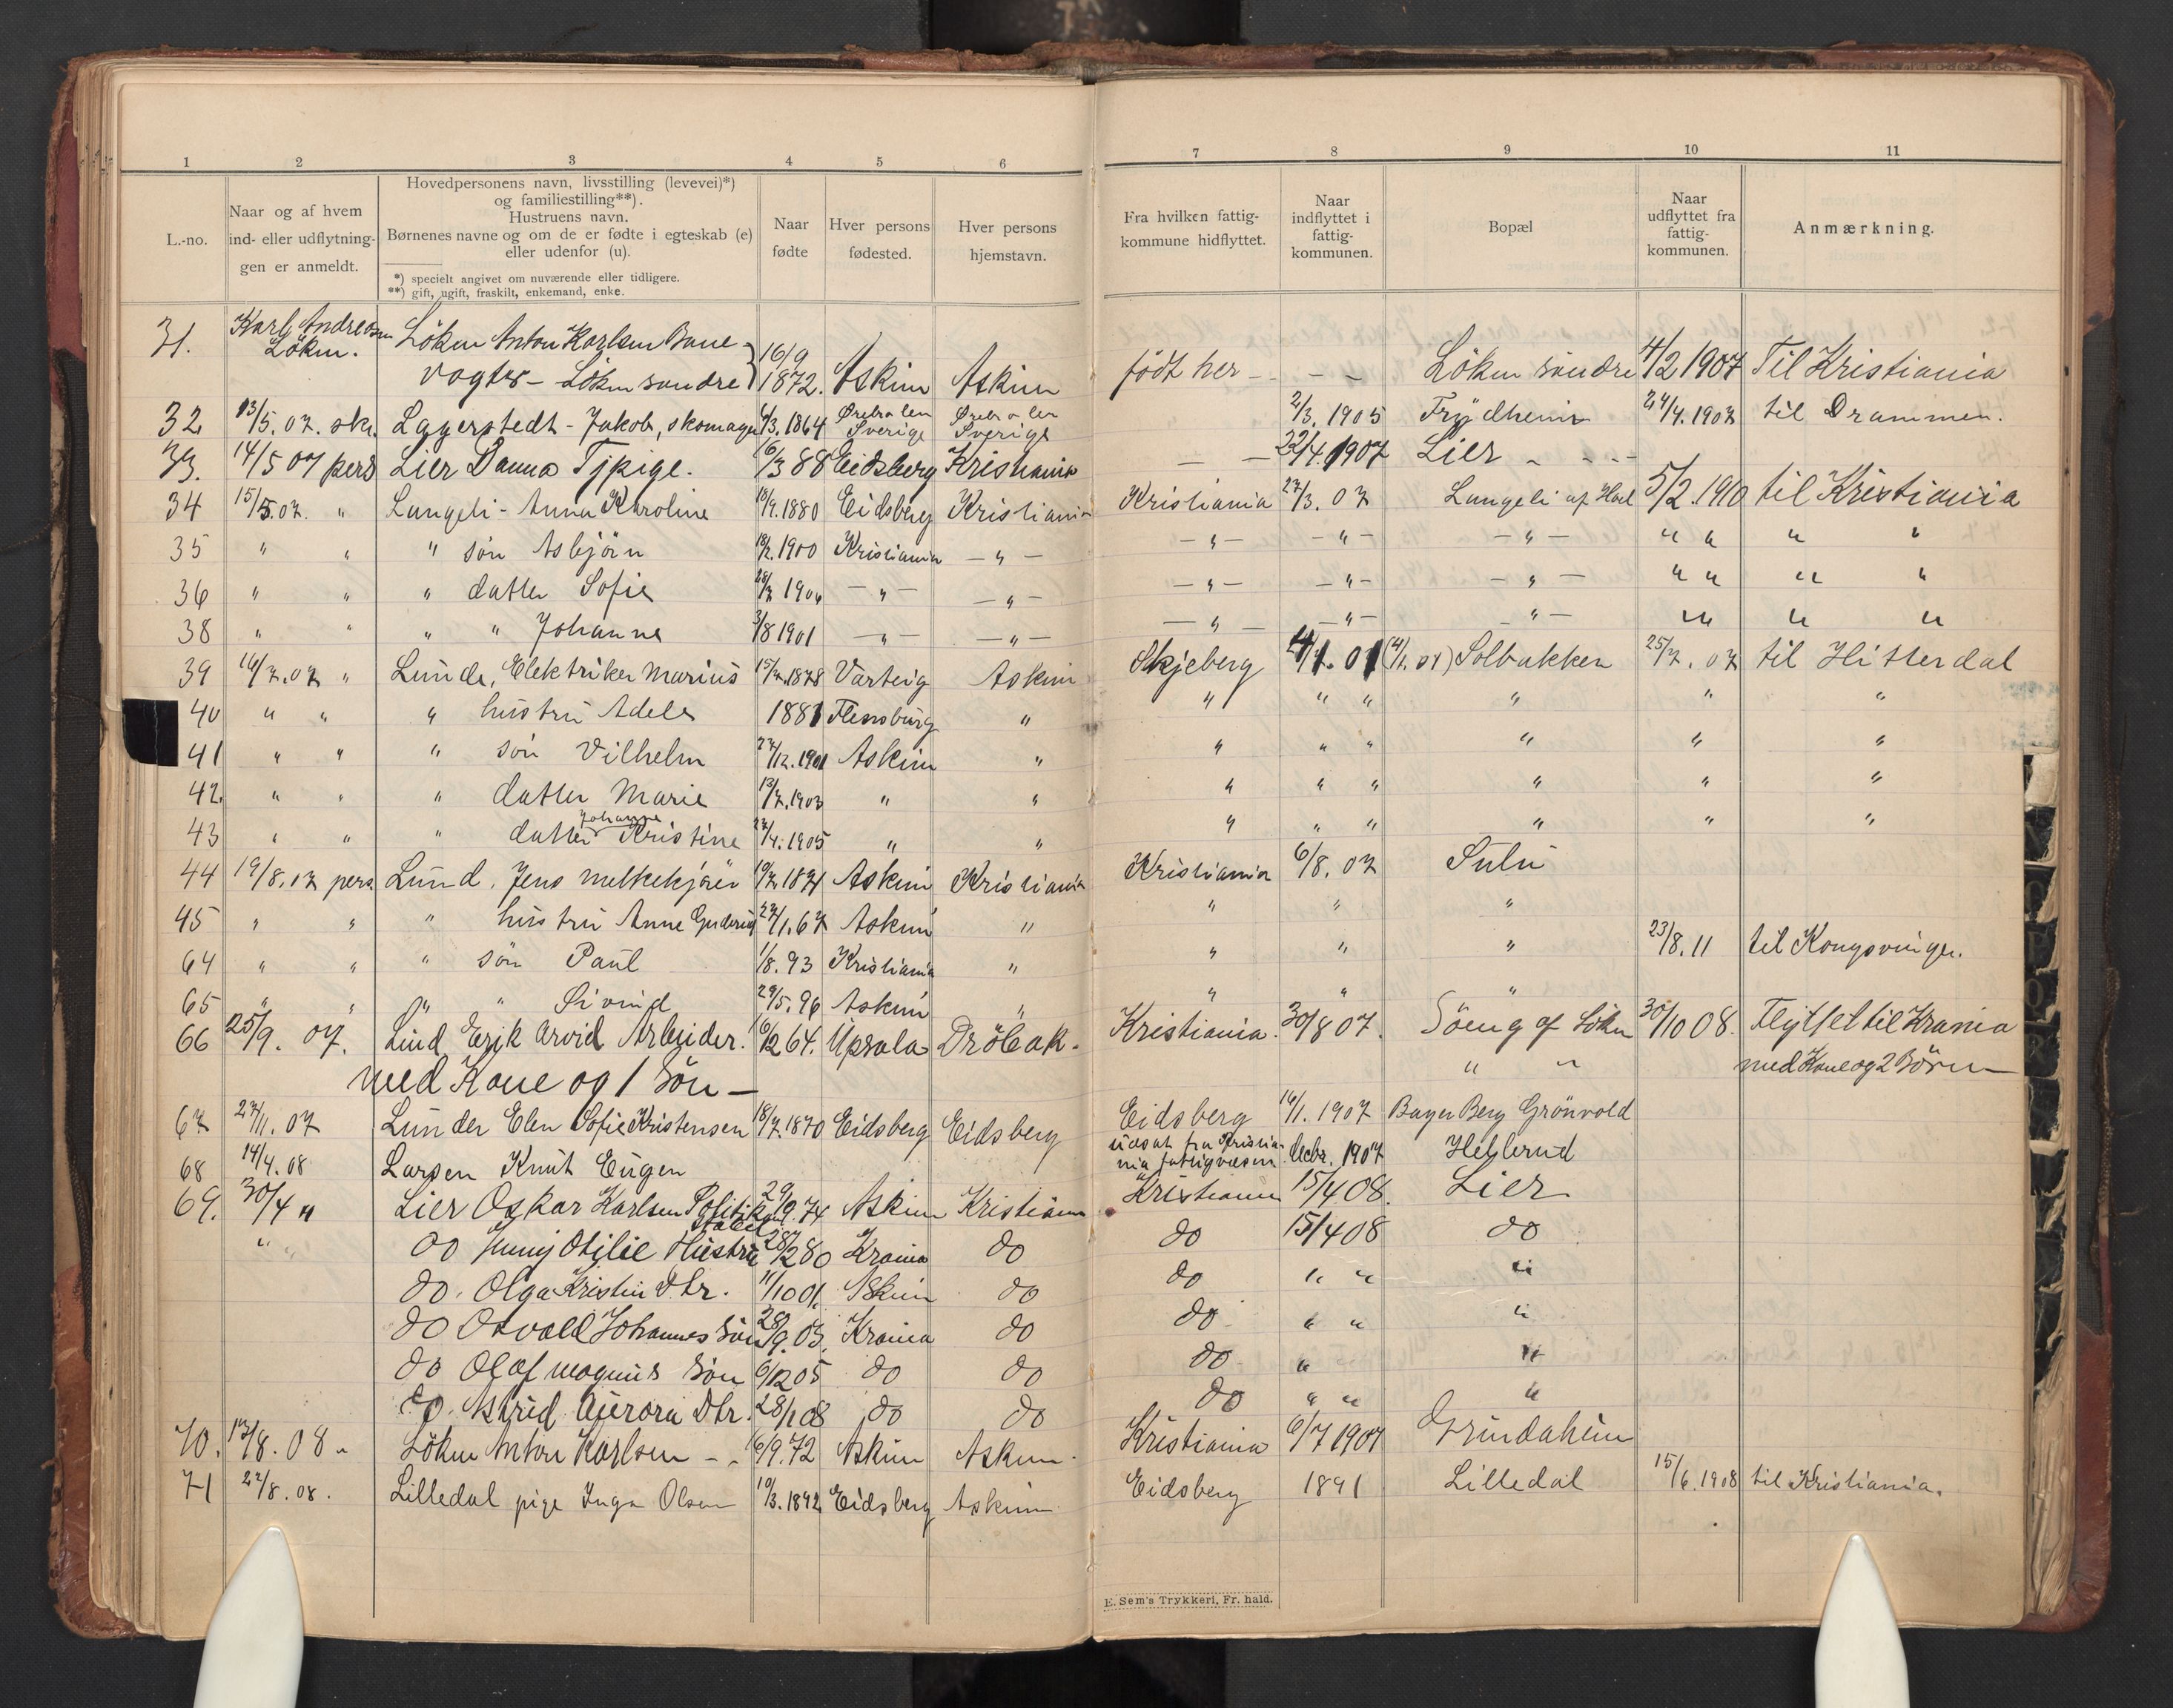 1 2 3 4 5 6 7 8 9 10 11
L.-no.
Naar og af hvem
ind- eller udflytnin-
gen er anmeldt.
Hovedpersonens navn, livsstilling (levevei)*)
og familiestilling**).
Hustruens navn.
Børnenes navne og om de er fødte i egteskab (e)
eller udenfor (u).
*) specielt angivet om nuværende eller tidligere.
**) gift, ugift, fraskilt, enkemand, enke.
Naar
fødte
Hver persons
fødested.
Hver persons
hjemstavn.
Fra hvilken fattig-
kommune hidflyttet.
Naar
indflyttet i
fattig-
kommunen.
Bopæl
Naar
udflyttet fra
fattig-
kommunen.
Anmærkning.
31. Karl Andreasen Löken Anton Karlsen Bane-
Löken. vogter - Löken søndre 16/9 1872. Askim Askim födt her - - - Löken søndre 4/2 1907 Til Kristiania
32 13/5.07. skr. Lagerstedt - Jakob, skomager /3.1864 Ørebro len Sverige Ørebro len Sverige 2/3.1905 Frydheim 24/4.1907 til Drammen.
33. 14/5 07 pers Lier Danna Tjpige. 6/3 88 Eidsberg Kristiania — — 22/4.1907 Lier - - - -
34 15/5.07. " Langeli - Anna Karoline 18/9.1880 Eidsberg Kristiania Kristiania 27/3.07 Langeli af Hol 5/2.1910 til Kristiania
35 " " " sön Asbjörn 1900 Kristiania — " — — " — — " — — " — " " " "
36 " " " datter Sofie — " — — " — — " — — " — — " — " " " "
38 " " " " Johanne 3/8 1901 — " — — " — — " — — " — " — " " " "
39 16/7.07 " Lunde, Elektriker Marius 15/7.1878 Varteig Askim Skjeberg 4/1.01 (4/1.01) Solbakken 25/7.07 til Hitterdal
40 " " " hustru Adele 1881 Flensburg " " " " " " "
41 " " " sön Vilhelm 27/12.1901 Askim " " " " " " "
42. " " " datter Marie 13/7.1903 " " " " " " " "
43 " " " datter Johanne Kristine 27/4.1905 " " " " " " " "
44 19/8.07 pers Lund, Jens melkekjörer Askim Kristiania Kristiania 6/8.07 Sulu
45 " " " hustru Anne 27/1.67 Askim " " " "
64 " " " sön Paul 1/8.93 Kristiania " " " " 23/8.11 til Kongsvinger.
65 " " " " Eivind 29/5.96 Askim " " " "
66 25/9. 07. Lind Erik Arvid Arbeider. 6/12 64. Upsala Dröbak. Kristiania. 30/8 07. Söeng af Löken 30/10 08. Flyttet til Krania
med Kone og 1 Sön — " " med Kone og 2 Börn —
67 27/11.07 Lunder Elen Sofie Kristensen 18/7.1870 Eidsberg Eidsberg Eidsberg 14/1.1907 Bager Berg Grönvold
68 14/4.08 Larsen Knut Eugen udsat fra Kristia- nia fattigvæsen Decbr. 1907 Hellerud
69. 30/4 " Lier Oskar Karlsen Politikon- stabel 29/9.74 Askim Kristiania Kristiania 15/4 08. Lier
" " do Jenny Otilie Hustru 28/2 80 Krania do do 15/4 08 do
do. Olga Kristin Dtr. 11/10 01. Askim do do " " "
do Osvald Johannes Sön 28/9.03. Krania do do " " "
do Olaf Magnus Sön 6/12 05 do do do " "
do. Astrid Aurora Dtr. 28/1 08 do do do " " "
70. 17/8.08 " Löken Anton Karlsen - - 16/9.72 Askim Askim. Kristiania 6/7 1907 Grindaheim
71 22/8.08. Lilledal pige Inga Olsen 10/3.1892 Eidsberg Askim Eidsberg 1891 Lilledal 15/6.1908 til Kristiania.
E. Sem's Trykkeri, Fr. hald.